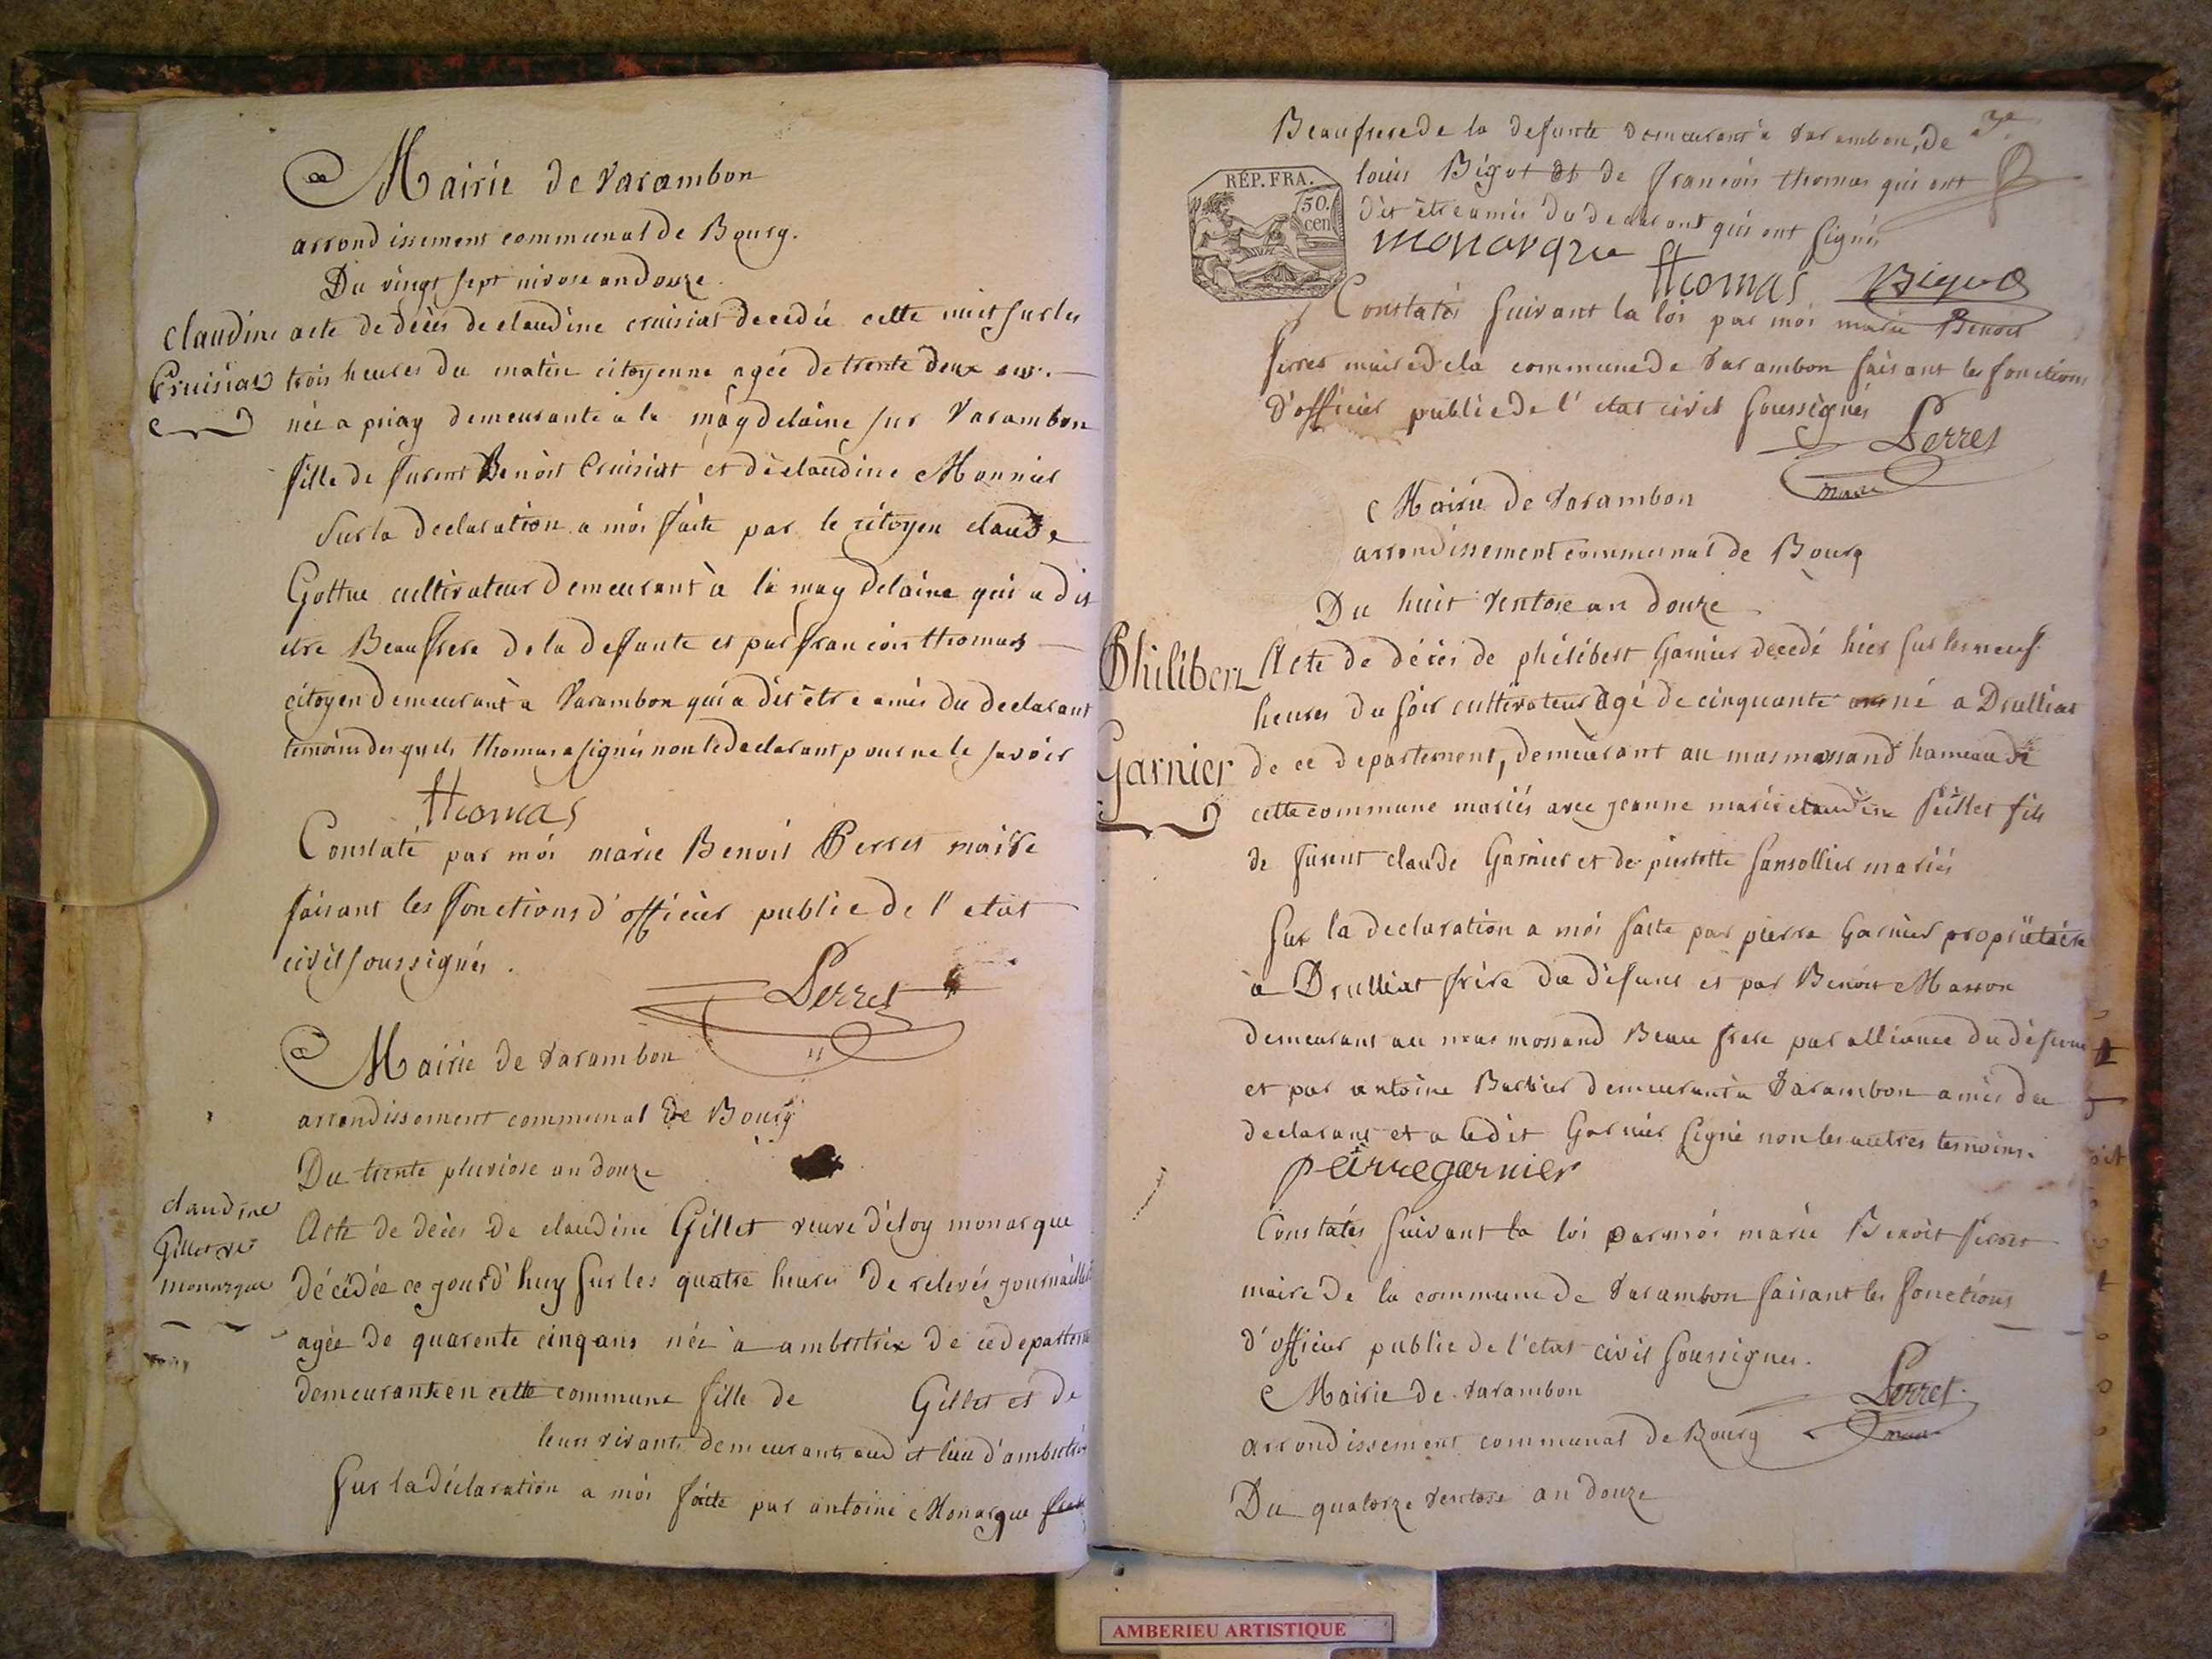 Mairie de Varambon
arrondissement communal de Bourg.
Du vingt sept nivose an douze.
claudine
Cruisiat
acte de décès de claudine cruisiat decedée cette nuit sur les
trois heures du matin citoyenne agée de trente deux ans.
née a priay demeurante a la magdelaine sur Varambon
fille de furent Benoit Cruisiat et de claudine Monnier
Sur la declaration a moi faite par le citoyen claude
Gottue cultivateur demeurant à la magdelaine qui a dit
etre Beaufrere de la defunte et par francois thomas
citoyen demeurant a Varambon qui a dit être amis du declarant
temoins desquels thomas a signés non le declarant pour ne le savoir
thomas
Constaté par moi marie Benoit Perret maire
faisant les fonctions d'officier public de l'etat
civil soussignés.
Perret
Mairie de Varambon
arrondissement communal de Bourg
Du trente pluviose an douze
claudine
Gillet ve
monarque
Acte de décès de claudine Gillet veuve d'éloy monarque
décédée ce jourd'huy sur les quatre heures de relevés
agée de quarente cinq ans née à ambutrix de ce
demeurante en cette commune fille de Gillet et de
leurs vivants demeurants audit lieu
Sur la déclaration a moi faite par antoine Monarque
3e
Beaufrere de la defunte demeurant a Varambon, de
louis Bigot et de francois thomas qui ont
dit être amis du declarant qui ont signés
REP. FRA.
50.
cen
monarque
thomas Bigot
Constatés suivant la loi par moi marie Benoit
perret maire de la commune de Varambon faisant les fonctions
d'officier public de l'etat civil soussignés
Perret
maire
Mairie de Varambon
arrondissement communal de Bourg
Du huit Ventose an douze
Philibert
Garnier
Acte de décès de philibert Garnier decedé hier sur les neuf
heures du soir cultivateur agé de cinquante ans né a Drulliat
de ce departement, demeurant au mas massand hameau de
cette commune mariés avec jeanne marie claudine fils
de furent claude Garnier et de pierrette Sansollier mariés
Sur la declaration a moi faite par pierre Garnier propriétaire
à Drulliat frère du défunt et par Benoit Masson
demeurant au mas mossand Beau frere par alliance du défunt
et par antoine Barbier demeurant a Varambon amis du
declarant et a ledit Garnier signé non les autres temoins.
pierre garnier
Constatés suivant la loi par moi marie Benoit perret
maire de la commune de Varambon faisant les fonctions
d'officier public de l'etat civil soussignés.
Perret
maire
Mairie de Varambon
arrondissement communal de Bourg
Du quatorze Ventose an douze
AMBERIEU ARTISTIQUE